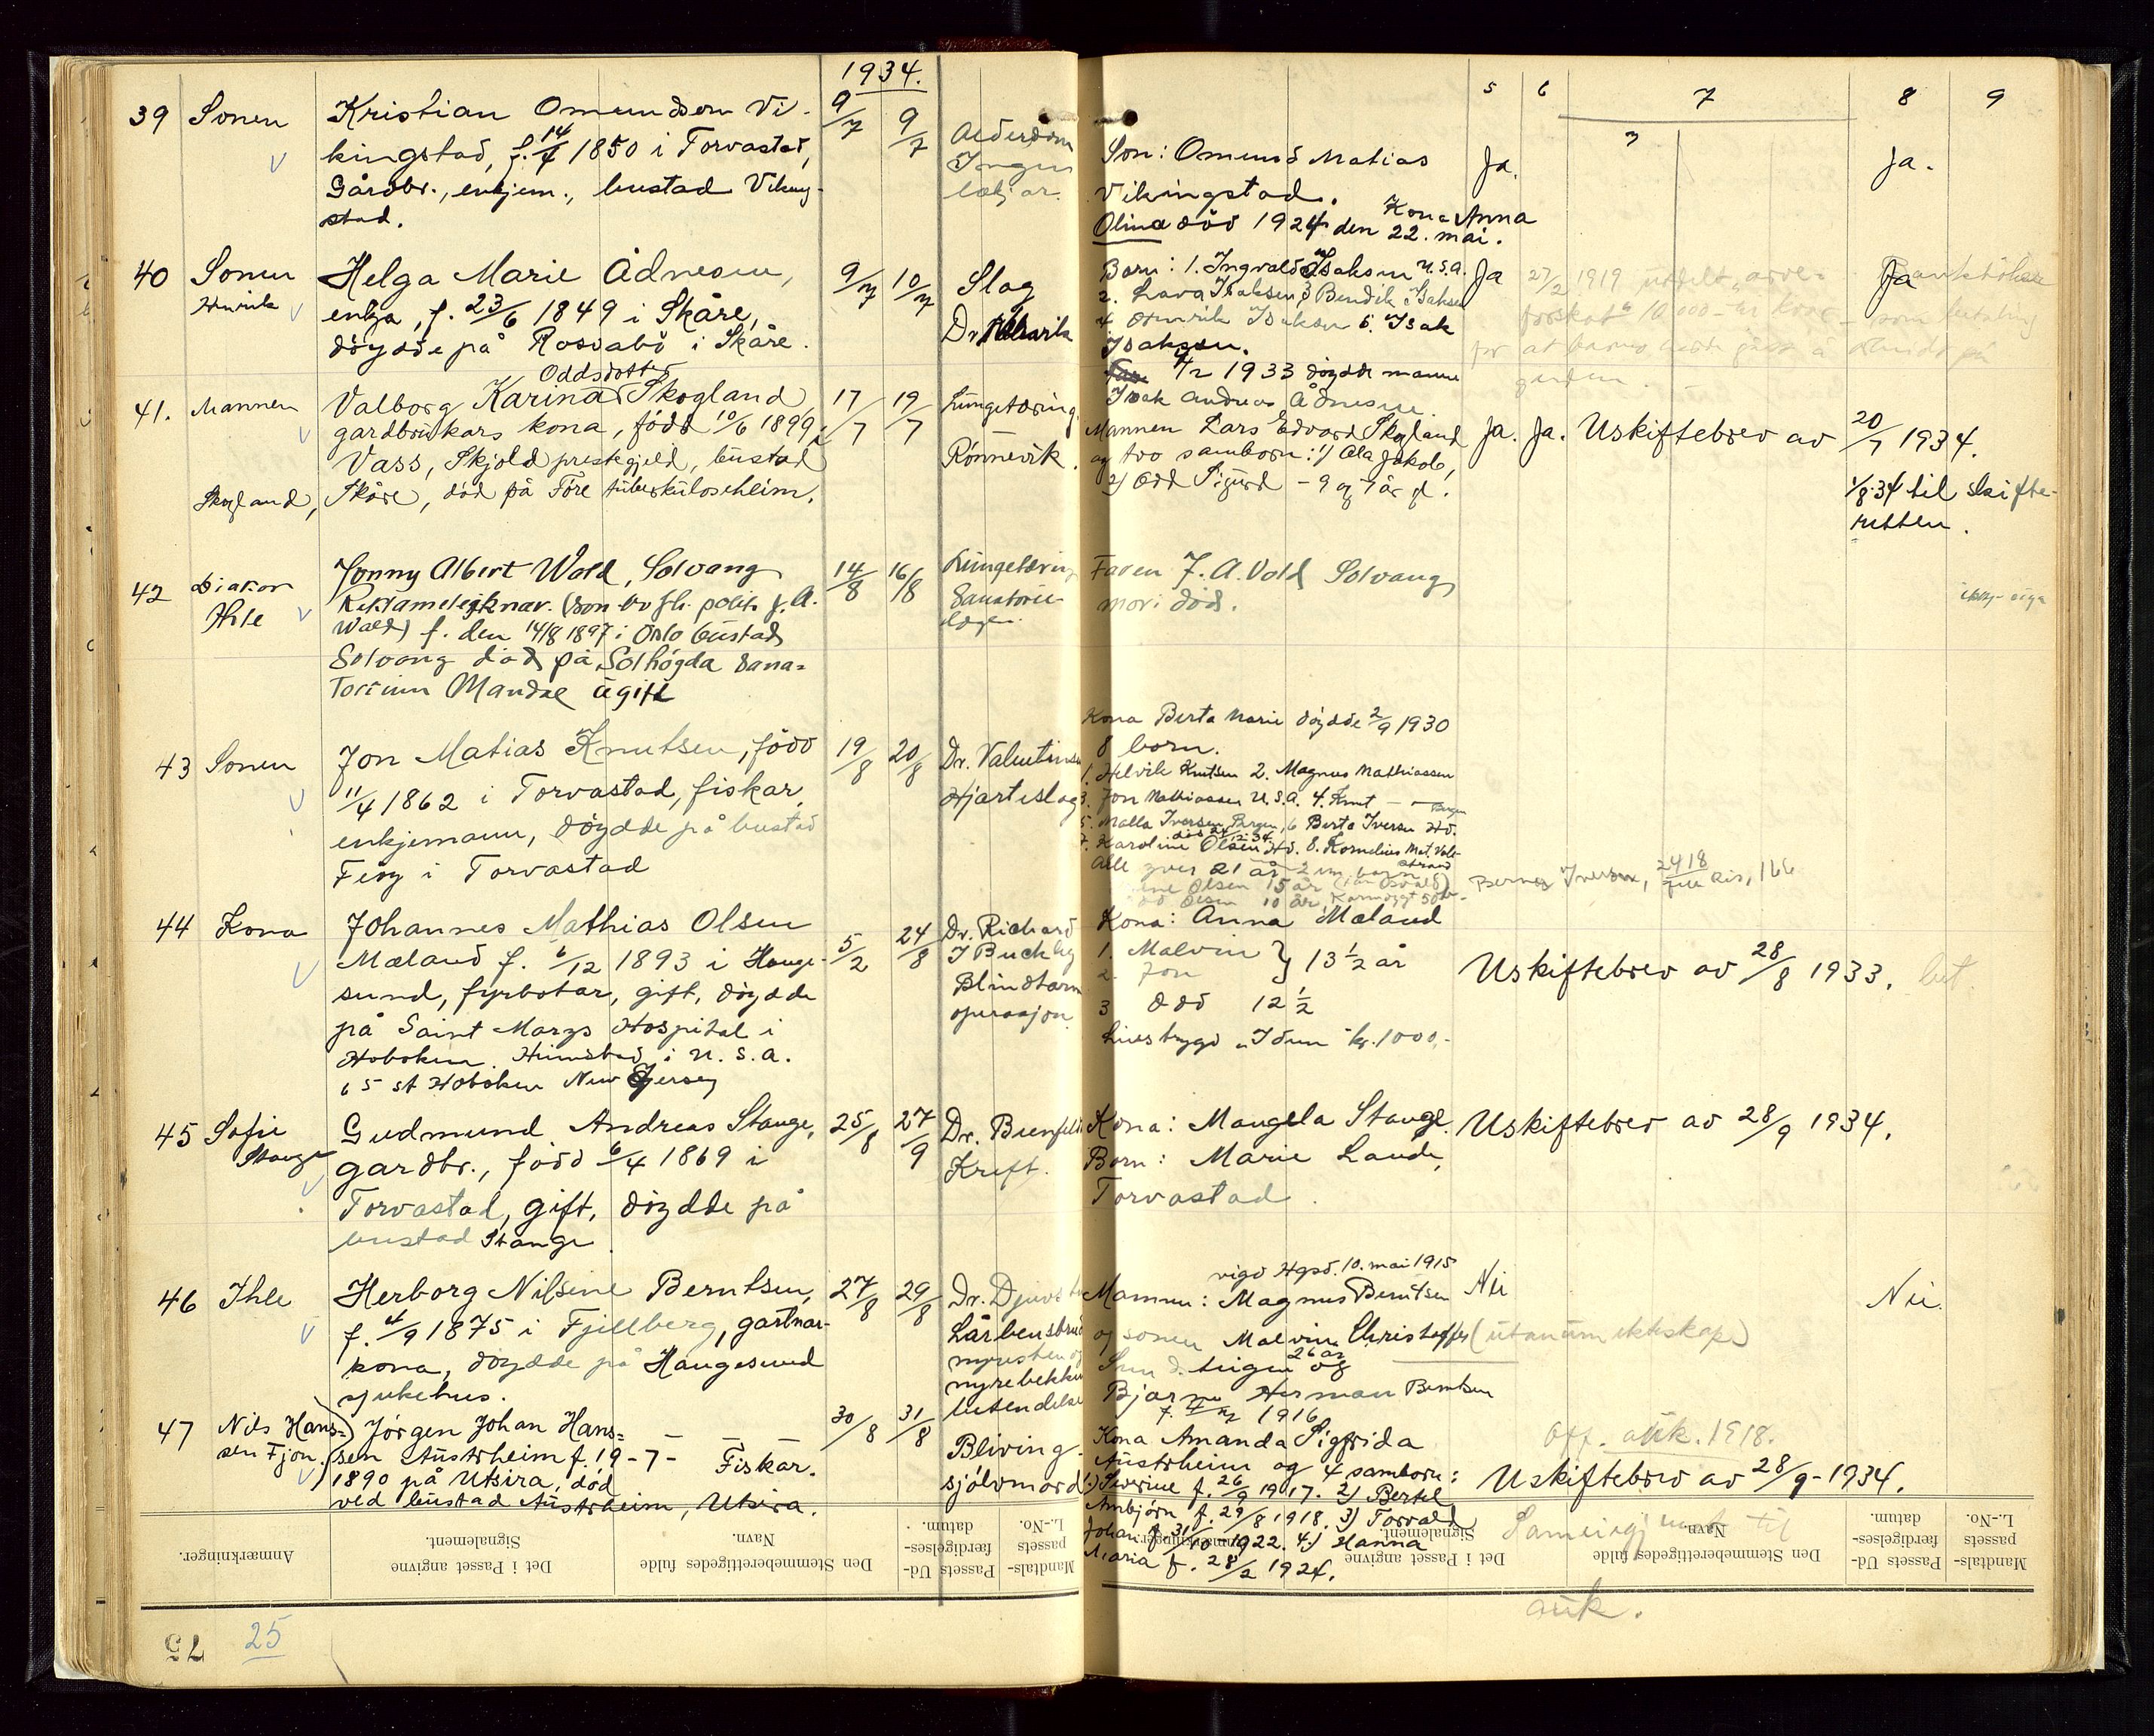 1934.
5 6 7 8 9
3
39 Sonen
Kristian Omundsen Vi-
kingstad, f. 14/4 1850 i Torvastad,
Gårdbr., enkjem., bustad Viking-
stad.
9/7 9/7
Alderdom
Ingen
lækjar.
Son: Omund Matias
Vikingstad.
Kona Anna
Olina död 1924 den 22. mai.
Ja.
Ja.
40 Sonen
Henrik
Helga Marie Ådnesen,
enka, f. 23/6 1849 i Skåre,
döydde på Rossabö i Skåre.
9/7 10/7
Slag
Dr.
Born: 1. Ingvald Isaksen U.S.A.
2. Lava Isaksen 3 Bendik Isaksen
4 Henrik Isaksen 5. Isak
Isaksen.
4/2 1933 döydde mannen
Isak Andreas Ådnesen.
Ja
27/2 1919 utdelt
10.000 kr
for at
Ja
41. Mannen
Skogland,
Oddsdotter
Valborg Karina Skogland
gardbrukars kona, född 10/6 1899 i
Vass, Skjold prestegjeld, bustad
Skåre, död på Före tuberkuloseheim.
17/7 19/7
Lungetæring
Rönnevik.
Mannen Lars Edvard Skogland
og tvo samborn: 1) Ola Jakob,
2) Odd Sigurd - 9 og 7 år gl.
Ja. Ja. Uskiftebrev av 20/7 1934.
1/8-34 til skifte-
retten.
42 Diakon
Ihle
Jonny Albert Wold, Solvang
Reklameteiknar. (son av fh. politi J. A.
Wold) f. den 14/8 1897 i Oslo bustad
Solvang död på Solhögda Sana-
torium Mandal ugift
14/8 16/8
Lungetæring
Sanatorie-
lægen.
Faren J. A. Vold Solvang
mori död.
43 Sonen
Jon Matias Knutsen, född
11/4 1862 i Torvastad, fiskar,
enkjemann, döydde på bustad
Feöy i Torvastad
19/8 20/8
Dr. Valentinsen
Hjarteslag
Kona Berta Marie döydde 2/9 1930
8 born.
1. Helvik Knutsen 2. Magnus Mathiassen
3. Jon Mathiassen U.S.A. 4. Knut
5. Malla Iversen, 6 Berta Iversen Hd.
död 24/12 34
7. Karoline Olsen Hd. 8. Kornelius Mat. Vold-
strand
Alle yver 21 år
Olsen 15 år
Olsen 10 år
Iversen, 2418
44 Kona
Johannes Mathias Olsen
Mæland f. 6/12 1893 i Hauge-
sund, fyrbötar, gift, döydde
på Saint Marys Hospital i
Hoboken. Heimstad i U.S.A.
65 st Hoboken New Jersey
5/2 24/8
Dr. Richard
J Buckley
Blindtarm
operasjon
Kona: Anna Mæland
1. Malvin } 13 1/2 år
2. Jon
3 Odd 12 1/2
Livstrygd "Idun" kr. 1000.-
Uskiftebrev av 28/8 1933. bet.
45 Sofie
Stange
Gudmund Andreas Stange,
gardbr., född 6/4 1869 i
Torvastad, gift, döydde på
bustad Stange
25/8 27/9
Dr. Bienfeldt
Kreft.
Kona: Mangela Stange.
Born: Marie Lande,
Torvastad.
Uskiftebrev av 28/9 1934.
46 Ihle
Herborg Nilsine Berntsen,
f. 4/9 1875 i Fjellberg, gartnar-
kona, döydde på Haugesund
sjukehus.
27/8 29/8
Dr.
Lårbensbrud
nyresten og
nyrebekken
betendelse
vigd Hgsd. 10. mai 1915
Mannen: Magnus Berntsen
og sonen Malvin Christoffer (utanum ekteskap)
26 år
ingen og
Bjarne Herman Berntsen
1916
Nei
Nei.
47 Nils Hans-
sen Fjon.
Jörgen Johan Hans-
sen Austrheim f. 19 - 7 -
1890 på Utsira, död
ved bustad Austrheim, Utsira.
Fiskar.
30/8 31/8
Bliving-
sjölvmord
Kona Amanda Sigfrida
Austrheim og 4 samborn:
1) Sverine f. 26/9 1917. 2) Bertel
Arnbjörn f. 29/8 1918. 3) Torvald
Johan f 31/10 1922. 4) Hanna
Maria f. 28/2 1924.
Off. auk. 1918.
Uskiftebrev av 28/9 - 1934.
til
auk.
Anmærkninger.
Det i Passet angivne
Signalement.
Den Stemmeberettigedes fulde
Navn.
Passets Ud-
færdigelses-
datum.
Mandtals-
passets
L.-No.
Anmærkninger.
Det i Passet angivne
Signalement.
Den Stemmeberettigedes fulde
Navn.
Passets Ud-
færdigelses-
datum.
Mandtals-
passets
L.-No.
75 25